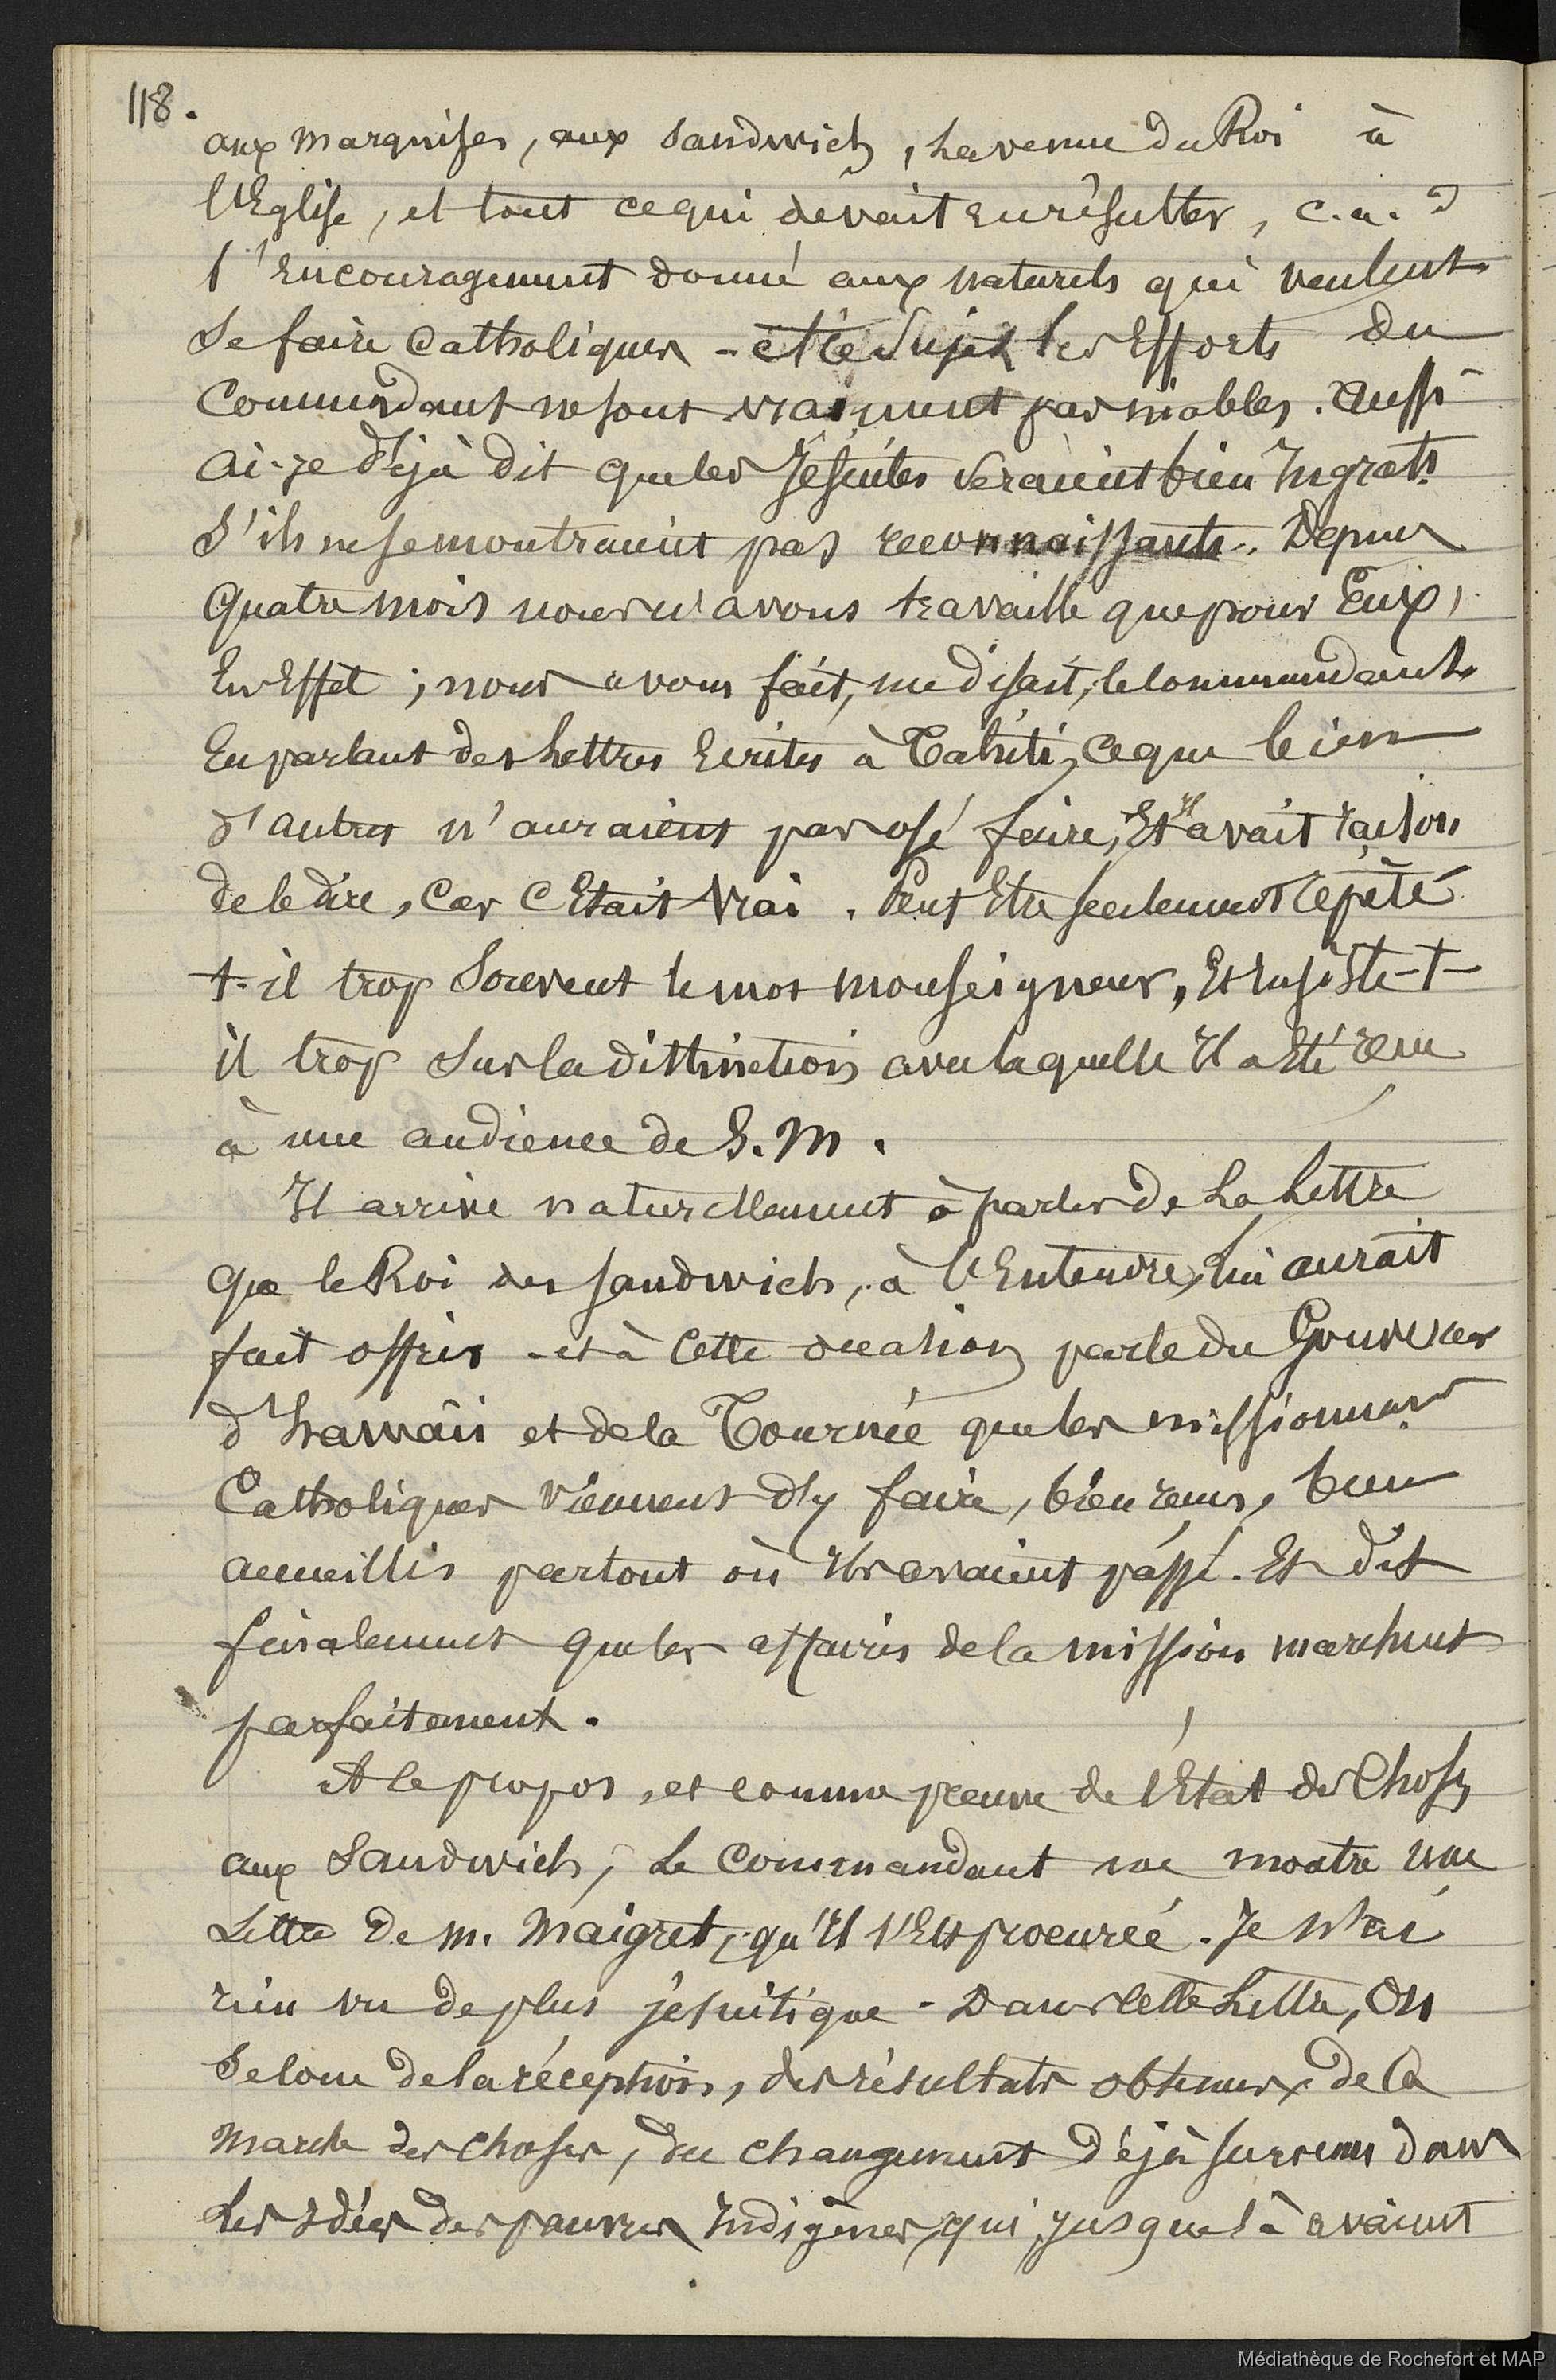 118.
aux marquises, aux Sandwich, La venue du Roi à
l'Eglise, et tout ce qui devait en résulter, c. a. d
l'Encouragement donné aux naturels qui veulent
Se faire Catholiques - à ce Sujet les Efforts du
Commandant ne sont vraiment pas niables. Aussi
ai-je déjà dit que les Jésuites seraient bien Ingrats
S'ils ne se montraient pas reconnaissants. Depuis
Quatre mois nous n'avons travaillé que pour Eux,
En Effet ; nous avons fait, me disait, le Commandant
En parlant des Lettres Ecrites à Tahiti, ce que bien
d'autres n'auraient pas osé faire, Et Il avait raison
de le dire, Car C Etait Vrai. Peut Etre seulement répète
t-il trop Souvent le mot monseigneur, Et insiste-t-
il trop Sur la distinction avec laquelle Il a Eté reçu
à une audience de S. M.
Il arrive naturellement à parler de La Lettre
Que le Roi des Sandwich, à l'Entendre, lui aurait
fait offrir - et à Cette occasion parle du Gouverneur
d'hawaii et de la Tournée que les missionnres
Catholiques viennent d'y faire, bien reçus, bien
accueillis partout où Ils avaient passé. Et dit
finalement que les affaires de la mission marchent
parfaitement.
A Ce propos, et comme preuve de l'Etat des Choses
aux Sandwich, Le Commandant me montre une
Lettre de m. Maigret, qu'Il s'Est procurée. Je n'ai
rien vu de plus jésuitique - Dans cette Lettre, On
Se loue de la réception, des résultats obtenus, de la
Marche des Choses, du changement déjà survenu dans
Les Idées des pauvres Indigènes, qui jusque là avaient
Médiathèque de Rochefort et MAP